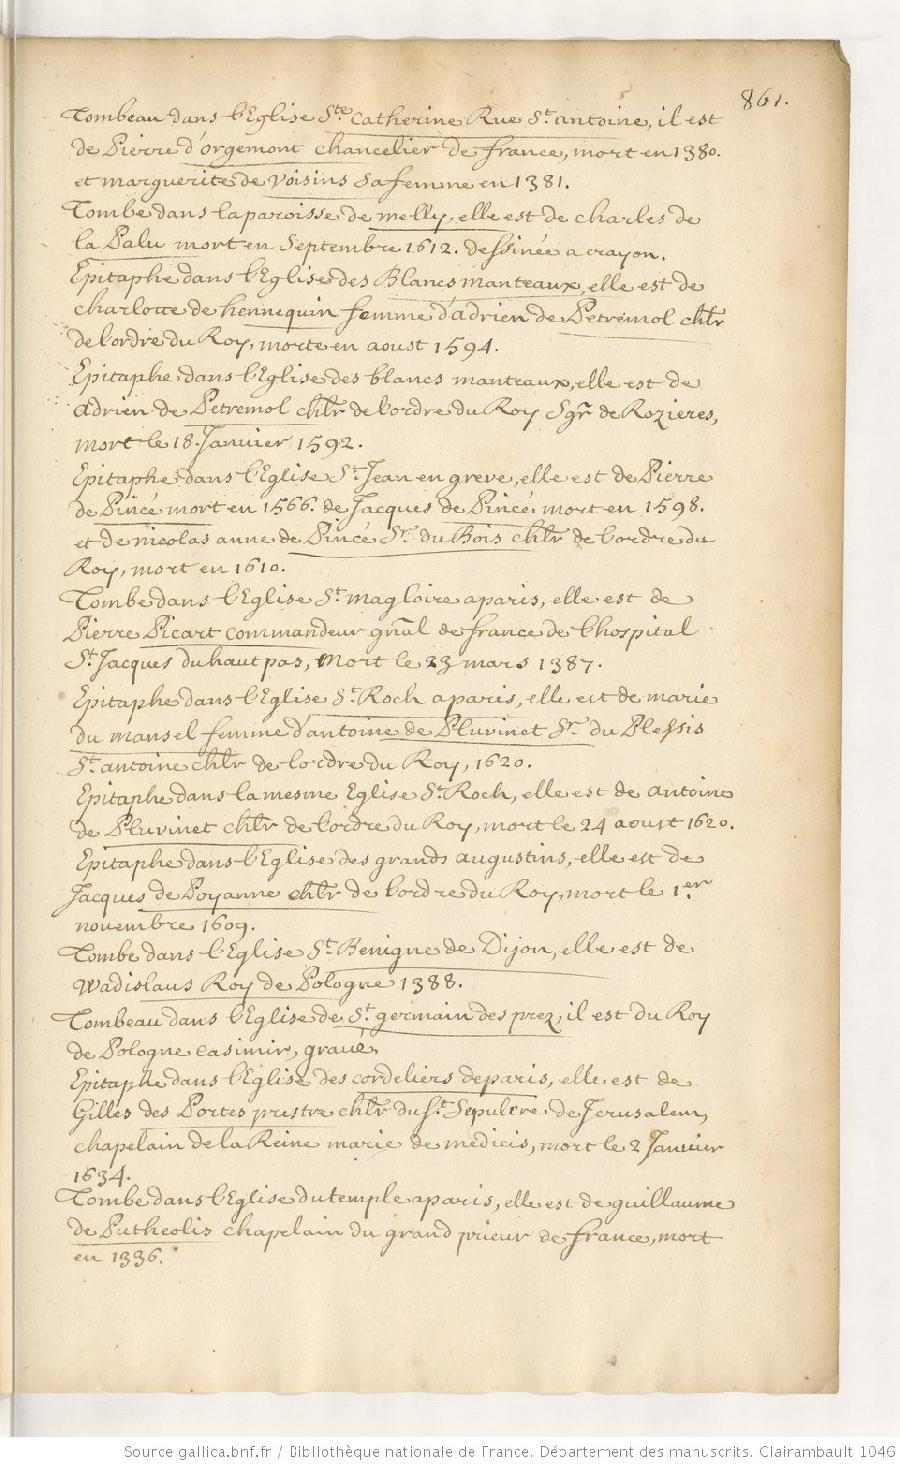 861.
Tombeau dans l'Eglise Ste Catherine Rue St. antoine, il est
de Pierre d'orgemont chancelier de france, mort en 1380.
et marguerite de Voisins sa femme en 1381.
Tombe dans la paroisse de melly, elle est de charles de
la Palu mort en Septembre 1612. dessinée a crayon.
Epitaphe dans l'Eglise des Blancs manteaux, elle est de
charlotte de hennequin femme d'adrien de Petremol chlr
de l'ordre du Roy, morte en aoust 1594.
Epitaphe dans l'Eglise des blancs manteaux, elle est de
adrien de Petremol chlr de l'ordre du Roy Sgr de Rozieres,
mort le 18. Janvier 1592.
Epitaphe dans l'Eglise St. Jean en greve, elle est de Pierre
de Pincé mort en 1566. de Jacques de Pincé mort en 1598.
et de nicolas anne de Pincé Sr. du Bois chlr de l'ordre du
Roy, mort en 1610.
Tombe dans l'Eglise St. magloire a paris, elle est de
Pierre Picart commandeur gnal de france de l'hospital
St. Jacques du haut pas, mort le 23 mars 1387.
Epitaphe dans l'Eglise St. Roch a paris, elle est de marie
du mansel femme d'antoine de Pluvinet Sr. du Plessis
St. antoine chlr de l'ordre du Roy, 1620.
Epitaphe dans la mesme Eglise St. Roch, elle est de antoine
de Pluvinet chlr de l'ordre du Roy, mort le 24 aoust 1620.
Epitaphe dans l'Eglise des grands augustins, elle est de
Jacques de Poyanne chlr de l'ordre du Roy, mort le 1er
novembre 1609.
Tombe dans l'Eglise St. Benigne de Dijon, elle est de
Wadislaus Roy de Pologne 1388.
Tombeau dans l'Eglise de St. germain des prez, il est du Roy
de Pologne casimir, gravé.
Epitaphe dans l'Eglise des cordeliers de paris, elle est de
Gilles des Portes prestre chlr du St. Sepulcre de Jerusalem,
chapelain de la Reine marie de medicis, mort le 2 Janvier
1634.
Tombe dans l'Eglise du temple a paris, elle est de guillaume
de Putheolis chapelain du grand prieur de france, mort
en 1336.
Source gallica.bnf.fr / Bibliothèque nationale de France. Département des manuscrits. Clairambault 1046